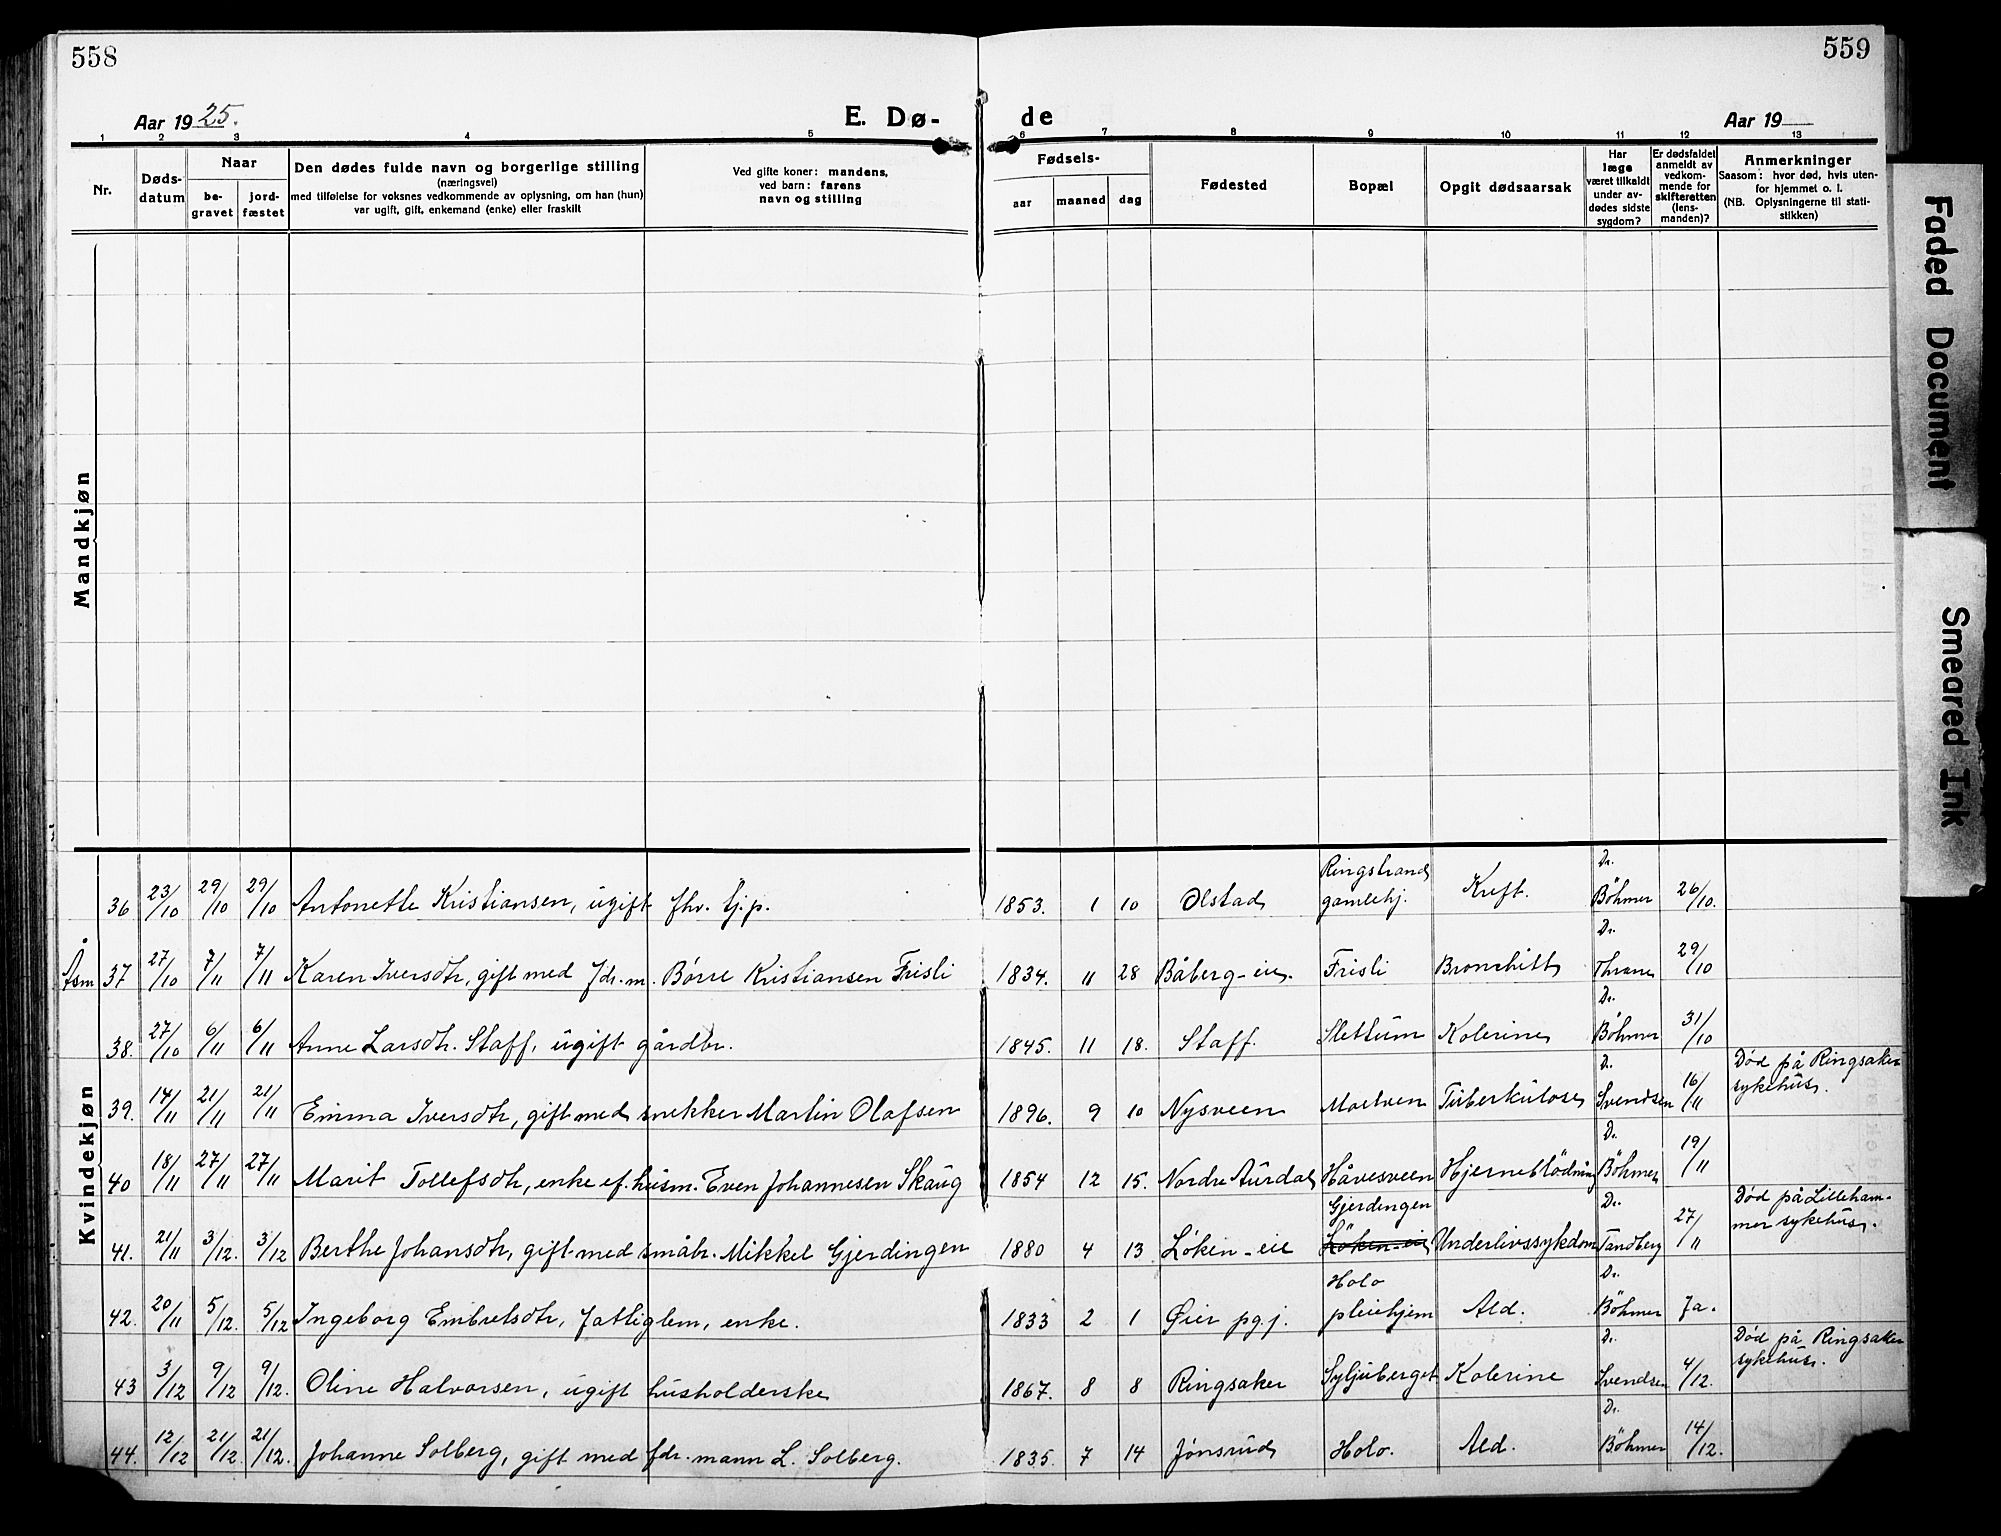 558
559
Aar 1925.
E. Dø-
de
Aar 19
1 2 3 4 5 6 7 8 9 10 11 12 13
Nr.
Døds-
datum
Naar
be-
gravet
jord-
fæstet
Den dødes fulde navn og borgerlige stilling
(næringsvei)
med tilføielse for voksnes vedkommende av oplysning, om han (hun)
var ugift, gift, enkemand (enke) eller fraskilt
Ved gifte koner: mandens,
ved barn: farens
navn og stilling
Fødsels-
aar
maaned
dag
Fødested
Bopæl
Opgit dødsaarsak
Har
læge
været tilkaldt
under av-
dødes sidste
sygdom?
Er dødsfaldet
anmeldt av
vedkom-
mende for
skifteretten
(lens-
manden)?
Anmerkninger
Saasom: hvor død, hvis uten-
for hjemmet o. l.
(NB. Oplysningerne til stati-
stikken)
Mandkjøn
Kvindekjøn
36 23/10 29/10 29/10 Antonette Kristiansen, ugift fhv. tj.p. 1853. 1 10 Olstad Ringstrand gamlehj. Kreft. Dr. Böhmer 26/10.
Åsm 37 27/10 7/11 7/11 Karen Iversdtr, gift med fdr.m. Børre Kristiansen Frisli 1834. 11 28 Båberg-eie. Frisli Bronchitt Dr. Thrane 29/10
38. 27/10 6/11 6/11 Anne Larsdtr. Staff, ugift gårdbr. 1845. 11 18. Staff. Slettum Kolerine Dr. Böhmer 31/10
39. 14/11 21/11 21/11 Emma Iversdtr, gift med snekker Martin Olafsen 1896. 9 10 Nysveen Moelven Tuberkulose Dr. Svendsen 16/11 Død på Ringsaker sykehus.
40 18/11 27/11 27/11 Marit Tollefsdtr, enke ef. husm. Even Johannesen Skaug 1854 12 15. Nordre Aurdal Håvesveen Hjerneblødning Dr. Böhmer 19/11
41. 21/11 3/12. 3/12 Berthe Johansdtr, gift med småbr. Mikkel Gjerdingen 1880 4 13 Løken-eie Gjerdingen Løken-eie Underlivssykdom Dr. Tandberg 27/11 Død på Lilleham-
mer sykehus.
42. 20/11 5/12. 5/12 Ingeborg Embretsdtr, fattiglem, enke. 1833 2 1 Øier pg.j. Holo pleiehjem Ald. Dr. Böhmer Ja.
43 3/12 9/12 9/12. Oline Halvorsen, ugift husholderske 1867. 8 8 Ringsaker Syljuberget Kolerine Dr. Svendsen 4/12. Død på Ringsaker sykehus.
44. 12/12 21/12. 21/12. Johanne Solberg, gift med fdr. mann L. Solberg. 1835. 7 14 Jønsrud Holo. Ald. Dr. Böhmer 14/12.
Faded Document
Smeared Ink